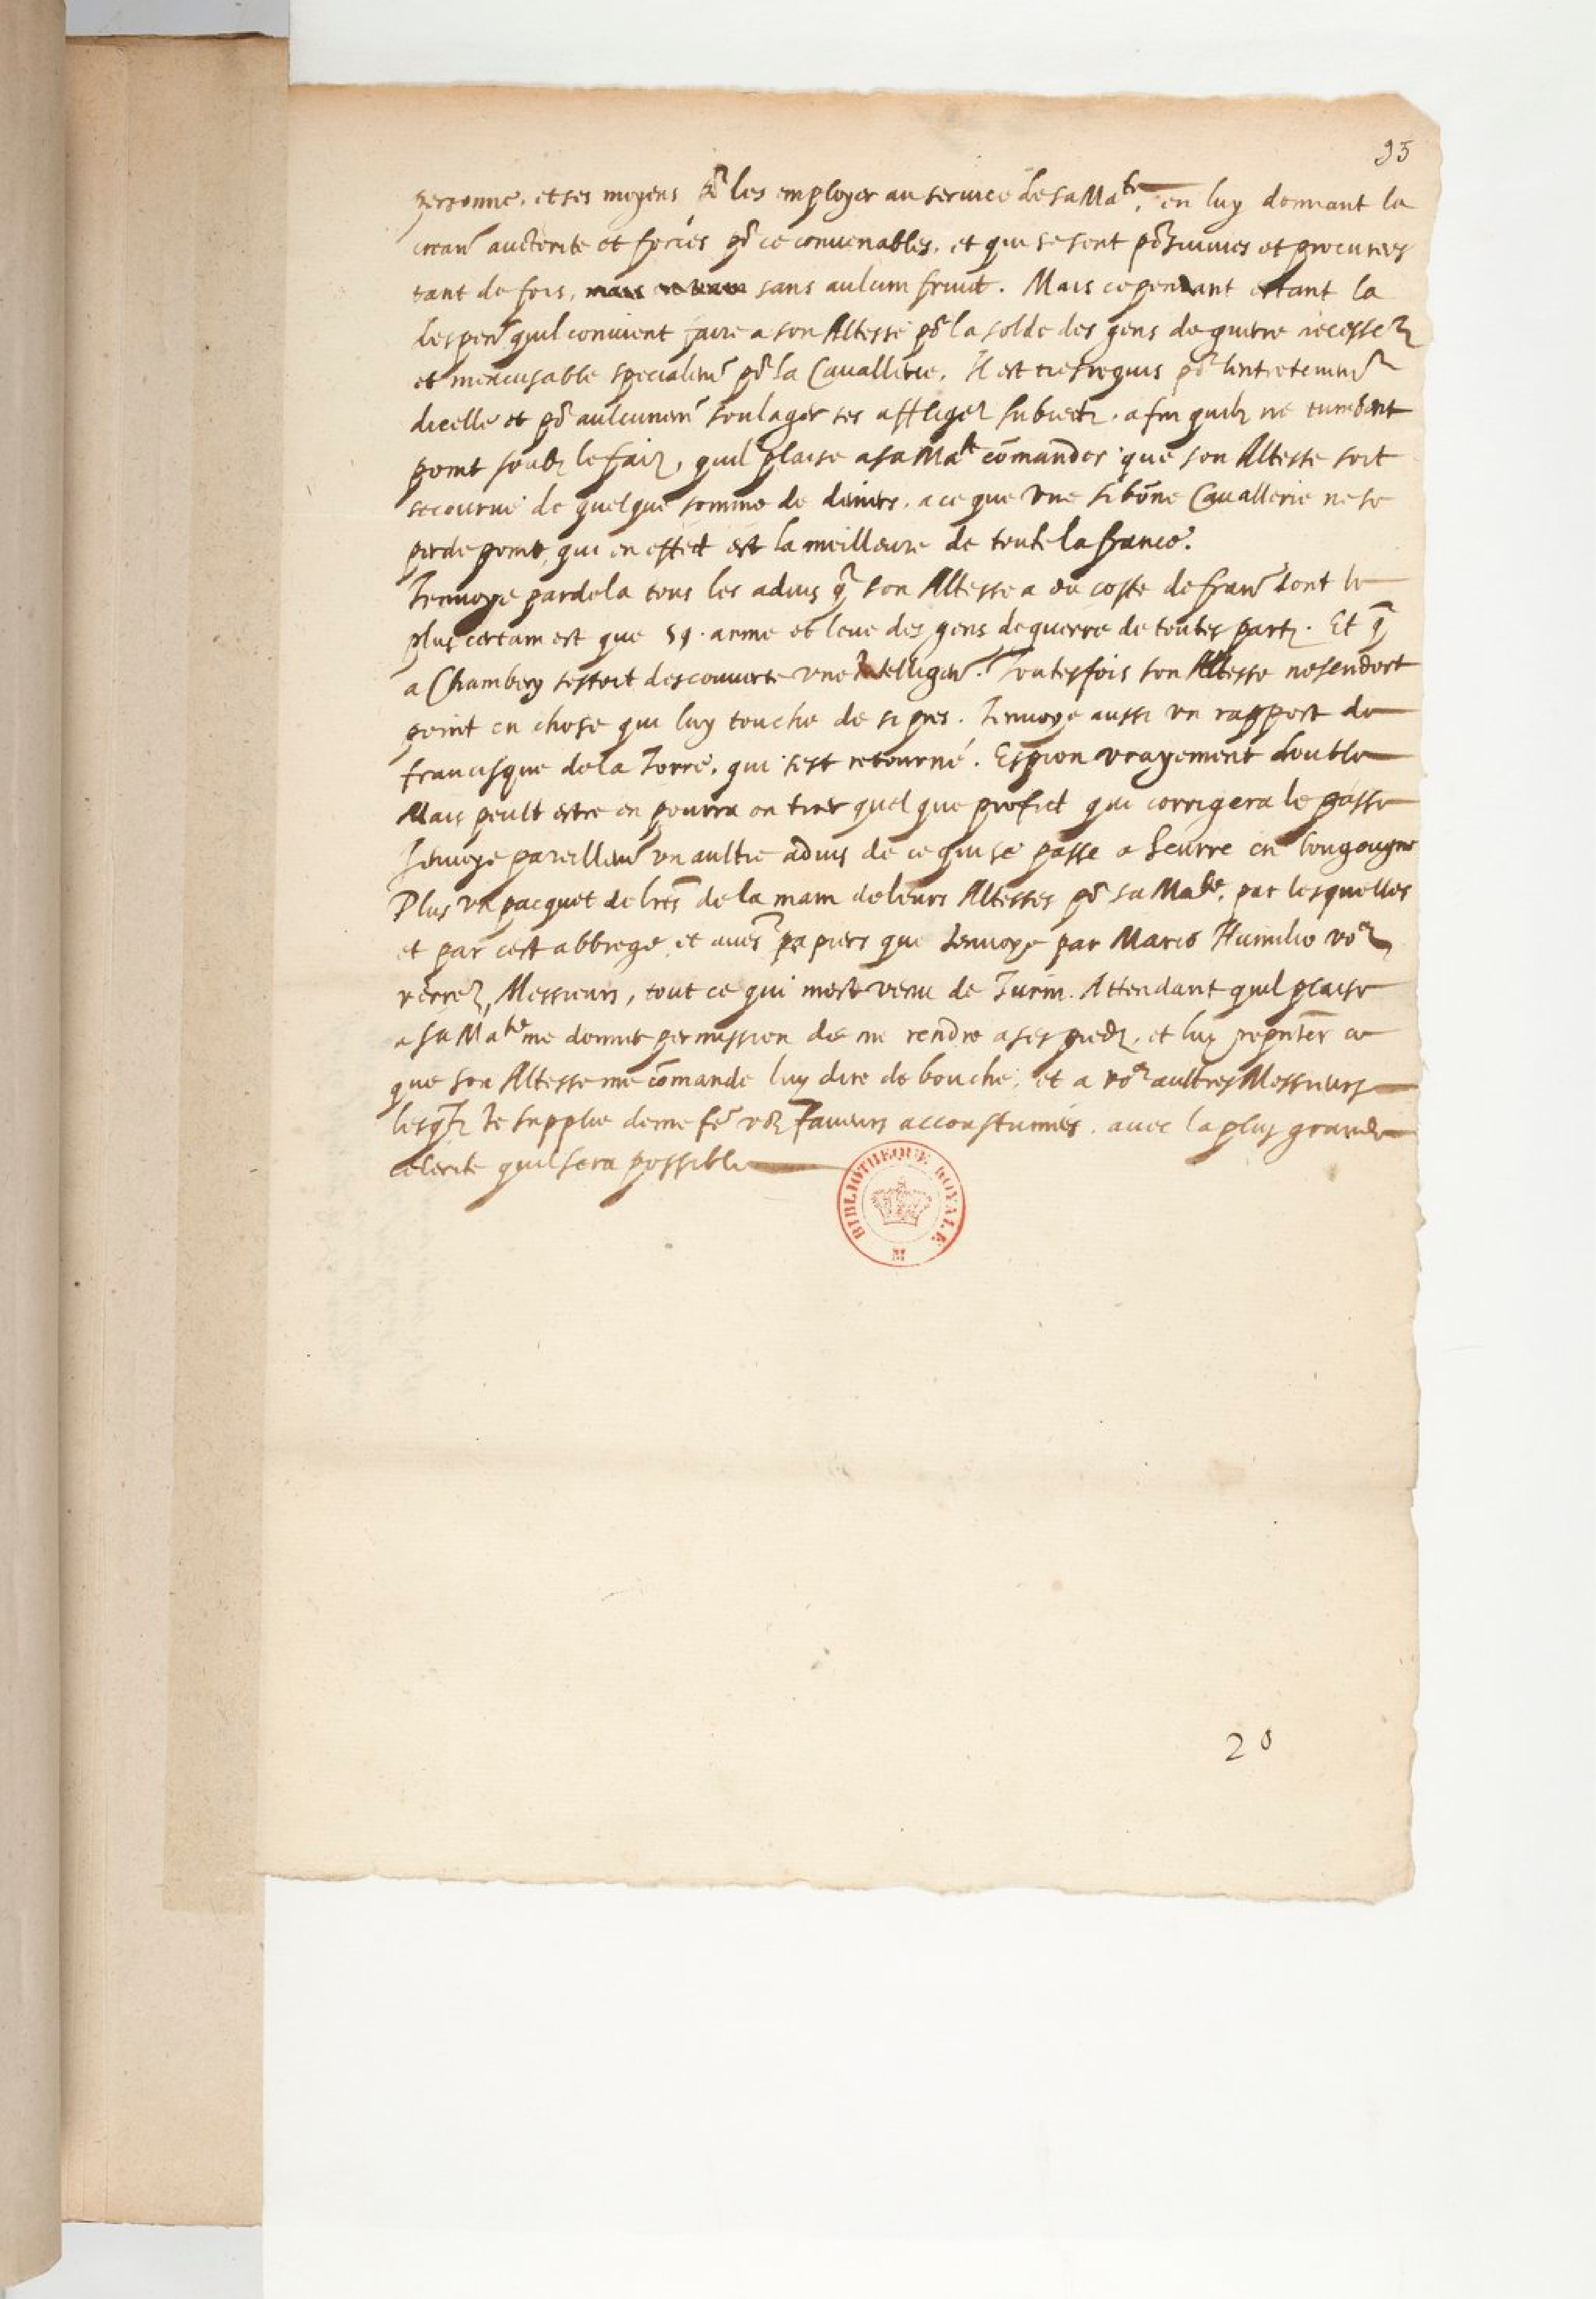 95
personne, et ses moyens po^r les employer au service de sa Ma^te, en luy donnant la
crean~ aucterite et forces po^r ce convenables, et qui se sont po^rsuivies et procurees
tant de fois, sans aulcun fruict. Mais cependant estant la
despen~ quil convient faire a son Altesse po^r la solde des gens de guerre necesse^rz
et inexcusable specialem~ po^r la Cavallerie, Il est tresrequis po^r lentretenem~
dicelle et po^r aulcunem~ soulager ses affligez subiectz, afin quilz ne tumbent
point soubz le faiz, quil plaise a sa Ma^te comander que son Altesse soit
secourue de quelque somme de deniers, a ce que une si bonne Cavallerie ne se
perde point, qui en effect est la meilleure de toute la france.
Jenvoye pardela tous les advis q~ son Altesse a du coste de fran~ dont le
plus certain est que arme et leve des gens de guerre de toutes partz. Et q~
a Chambery sestoit descouverte une Intelligen~. Toutesfois son Altesse ne sendort
point en chose qui luy touche de si pres. Jenvoye aussi un rapport de
francisque de la Torre, qui sest retourné. Espion vrayement double
Mais peult estre en pourra on tirer quelque profict qui corrigera le passe
Jenvoye pareillem~ un aultre advis de ce qui se passe a Seurre en bougougne
Plus un pacquet de lres de la main de leurs Altesses po^r sa Ma^te, par lesquelles
et par cest abbregé et aues~ papiers que Jenvoye par Mario Humilio vo^s
verrez, Messieurs, tout ce qui mest venu de Turin. Attendant quil plaise
a sa Ma^te me donner permission de me rendre a ses piedz, et luy repnter ce
que son Altesse me comande luy dire de bouche, et a vo^s aultres Messieurs
lesq~lz Je supplie de me fe~ voz faveurs accoustumées, avec la plus grande
celerite quil sera possible
BIBLIOTHEQUE ROYALE
M
20